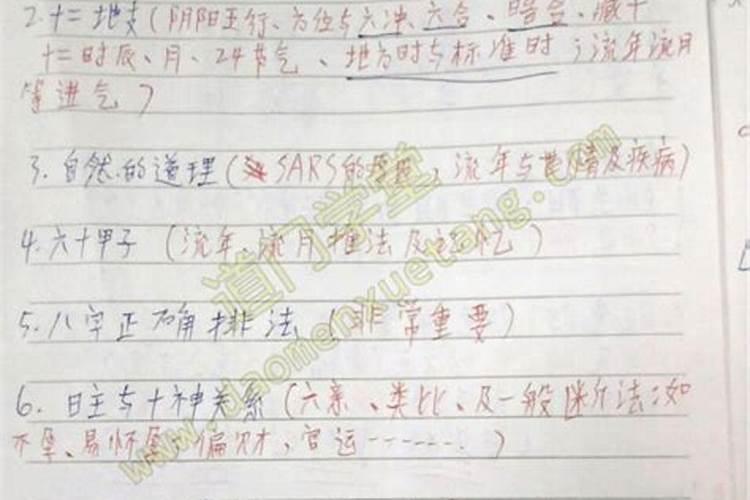 2.十二地支(阴阳五行、方位与六冲、六合、暗合、藏干
十二时辰、月、24节气、地方时与标准时;流年流月
等进气)
3.自然的道理(SARS的,流年与情及疾病)
4.六十甲子(流年、流月推法及记忆)
5.八字正确排法(非常重要)
6.日主与十神关系(六亲、类比、及一般断法:如
不孕、易怀孕、偏财、官运……)
道门学堂
www.daomenxuetang.com